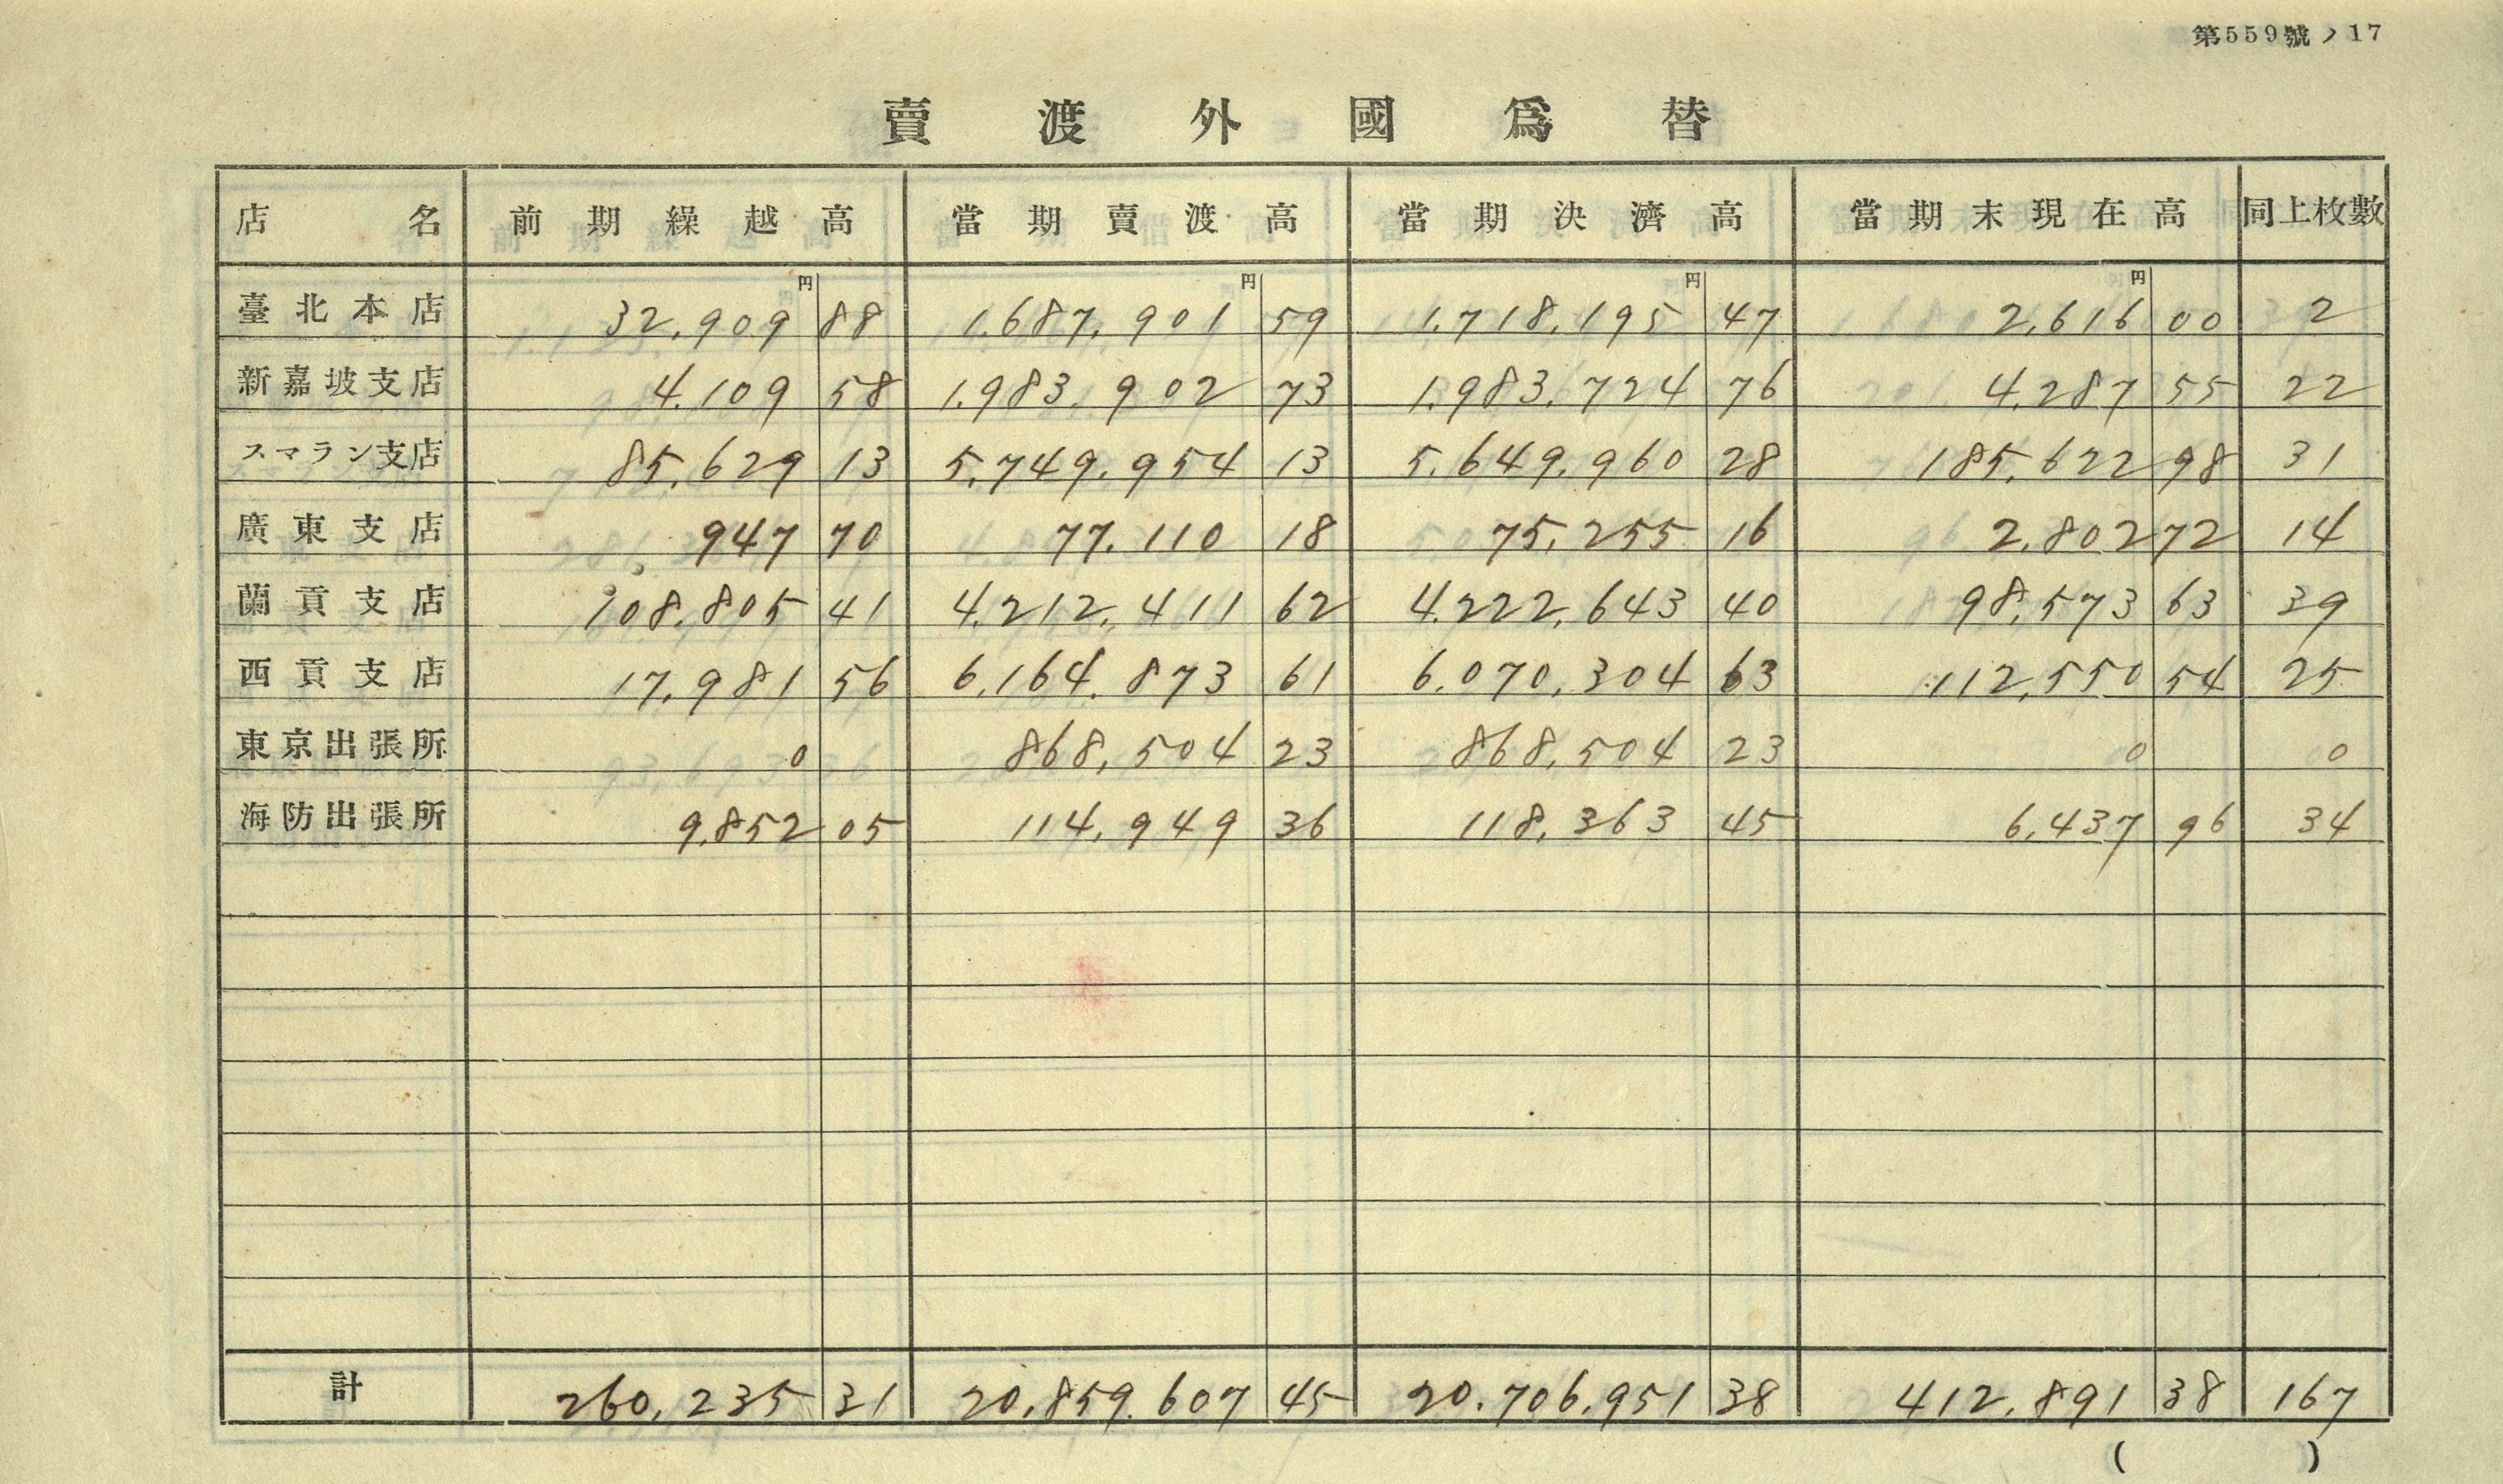 第559號ノ17
賣渡外國爲替
店名 前期繰越高 當期賣渡高 當期決濟高 當期末現在高 同上枚數
円 円 円 円
臺北本店 32,909 88 1.687.901 59 1.718.195 47 2.616 00 2
新嘉坡支店 4.109 58 1.983.902 73 1.983.724 76 4.287 55 22
スマラン支店 85.629 13 5.749.954 13 5.649.960 28 185.622 98 31
廣東支店 947 70 77.110 18 75.255 16 2.802 72 14
蘭貢支店 108.805 41 4.212.411 62 4.222.643 40 98.573 63 39
西貢支店 17.981 56 6.164.873 61 6.070.304 63 112,550 54 25
東京出張所 0 868,504 23 868,504 23 0 0
海防出張所 9.852 05 114,949 36 118,363 45 6,437 96 34
計 260,235 31 20,859.607 45 20.706.951 38 412.891 38 167
( )